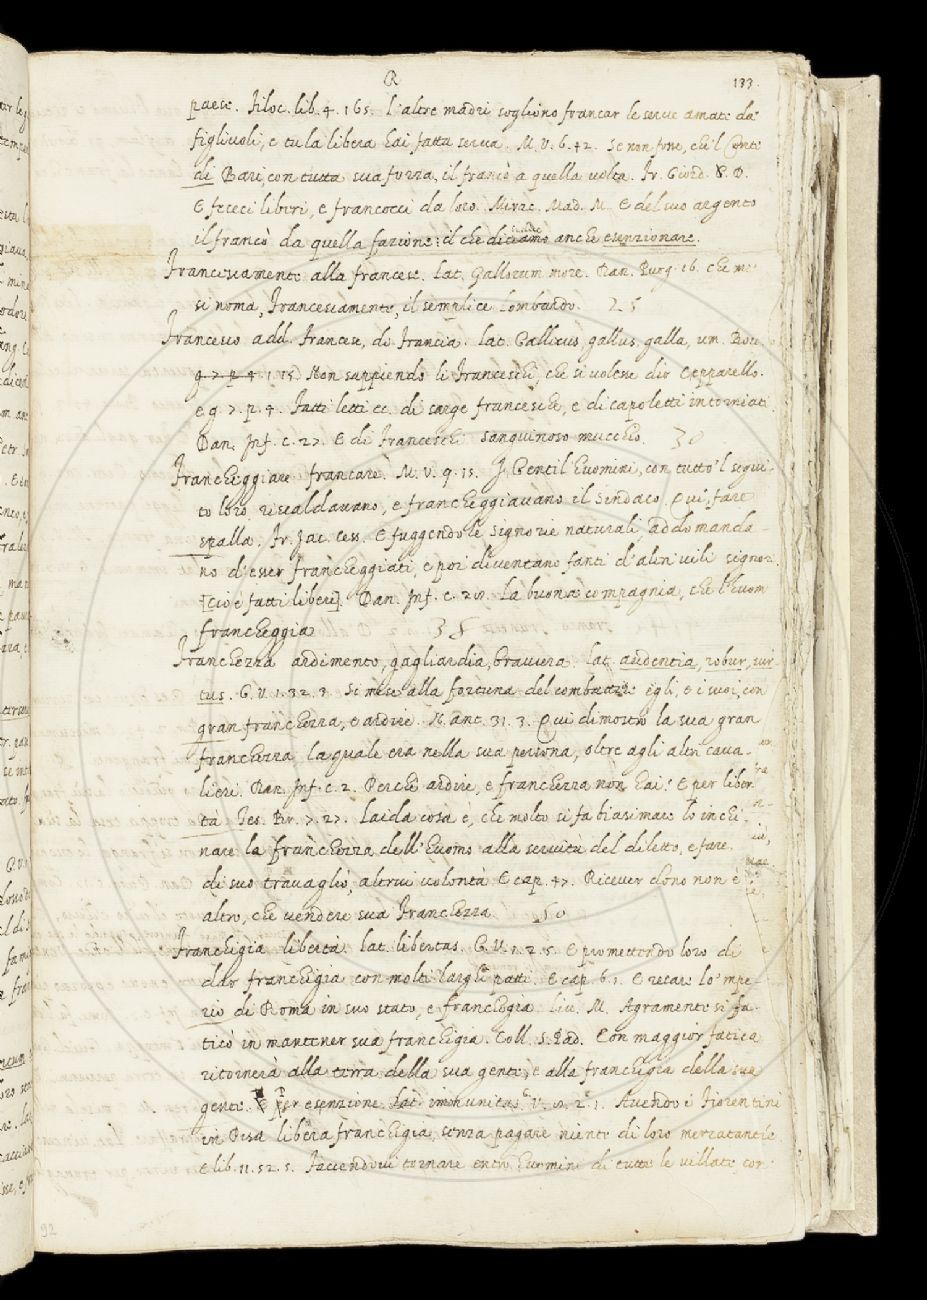 R 133.
paese. Filoc. lib. 4. 165. l'altre madri sogliono francar le serve amate da'
figlivoli, e tu la libera hai fatta serva. M. V. 6. 42. Se non fosse, che'l Conte
di Bari, con tutta sua forza, il francò a quella volta. Fr. Giord. P. D.
E fececi liberi, e francocci da loro. Mirac. Mad. M. E del suo argento
il francò da quella fazione: il che diciamo anche esenzionare.
Francescamente alla francese. Lat. Gallorum more. Dan. Purg. 16. che me'
si noma, Francescamente, il semplice Lombardo. 25
Francesco add. Francese, di Francia. Lat. Gallicus, gallus, galla, um. Boc.
g. 7. p. 4. 1. 15. Non sappiendo li Franceschi, che si volesse dir Cepparello.
e g. 7. p. 4. Fatti letti ec. di sarge francesche, e di capoletti intorniati
Dan. Inf. c. 27. E di Franceschi sanguinoso mucchio. 30
Francheggiare francare. M. V. 9. 15. I Gentil huomini, con tutto'l segui-
to loro, riscaldavano, e francheggiavano il Sindaco. Qui, fare
spalla. Fr. Jac. Ces. E fuggendo le signorie naturali, addomanda-
no d'esser francheggiati, e poi diventano fanti d'altri vili signori.
[cioè fatti liberi]. Dan. Inf. c. 28. La buona compagnia, che l'huom
francheggia 35
Franchezza ardimento, gagliardia, bravura. Lat. audentia, robur, vir-
tus. G. V. 1. 32. 3. Si mise alla fortuna del combatter egli, e i suoi, con
gran franchezza, e ardire. N. ant. 31. 3. Qui dimostrò la sua gran
franchezza, la quale era nella sua persona, oltre agli altri cava-
lieri. Dan. Inf. c. 2. Perchè ardire, e franchezza non hai? E per liber-
tà Tes. Br. 7. 27. Laida cosa è, che molto si fa biasimare lo inchi-
nare la franchezza dell'huomo alla servitù del diletto, e fare
di suo travaglio, altrui volontà E cap. 47. Ricever dono non è
altro, che vendere sua Franchezza 50
Franchigia libertà. Lat. libertas. G. V. 1. 2. 5. E promettendo loro di
dar franchigia con molti larghi patti. E cap. 6. 1. E recare lo'mpe-
rio di Roma in suo stato, e franchigia Liv. M. Agramente si fa-
ticò in mantener sua franchigia. Coll. S. Pad. Con maggior fatica
ritornerà alla terra della sua gente, e alla franchigia della sua
gente. E per esenzione. Lat. immunitas G. V. 8. 2. 1. Avendo i Fiorentini
in Pisa libera franchigia, senza pagare niente di loro mercatantìe
E lib. 11. 52. 5. Faccendovi tornare entro huomini di tutte le villate con
92